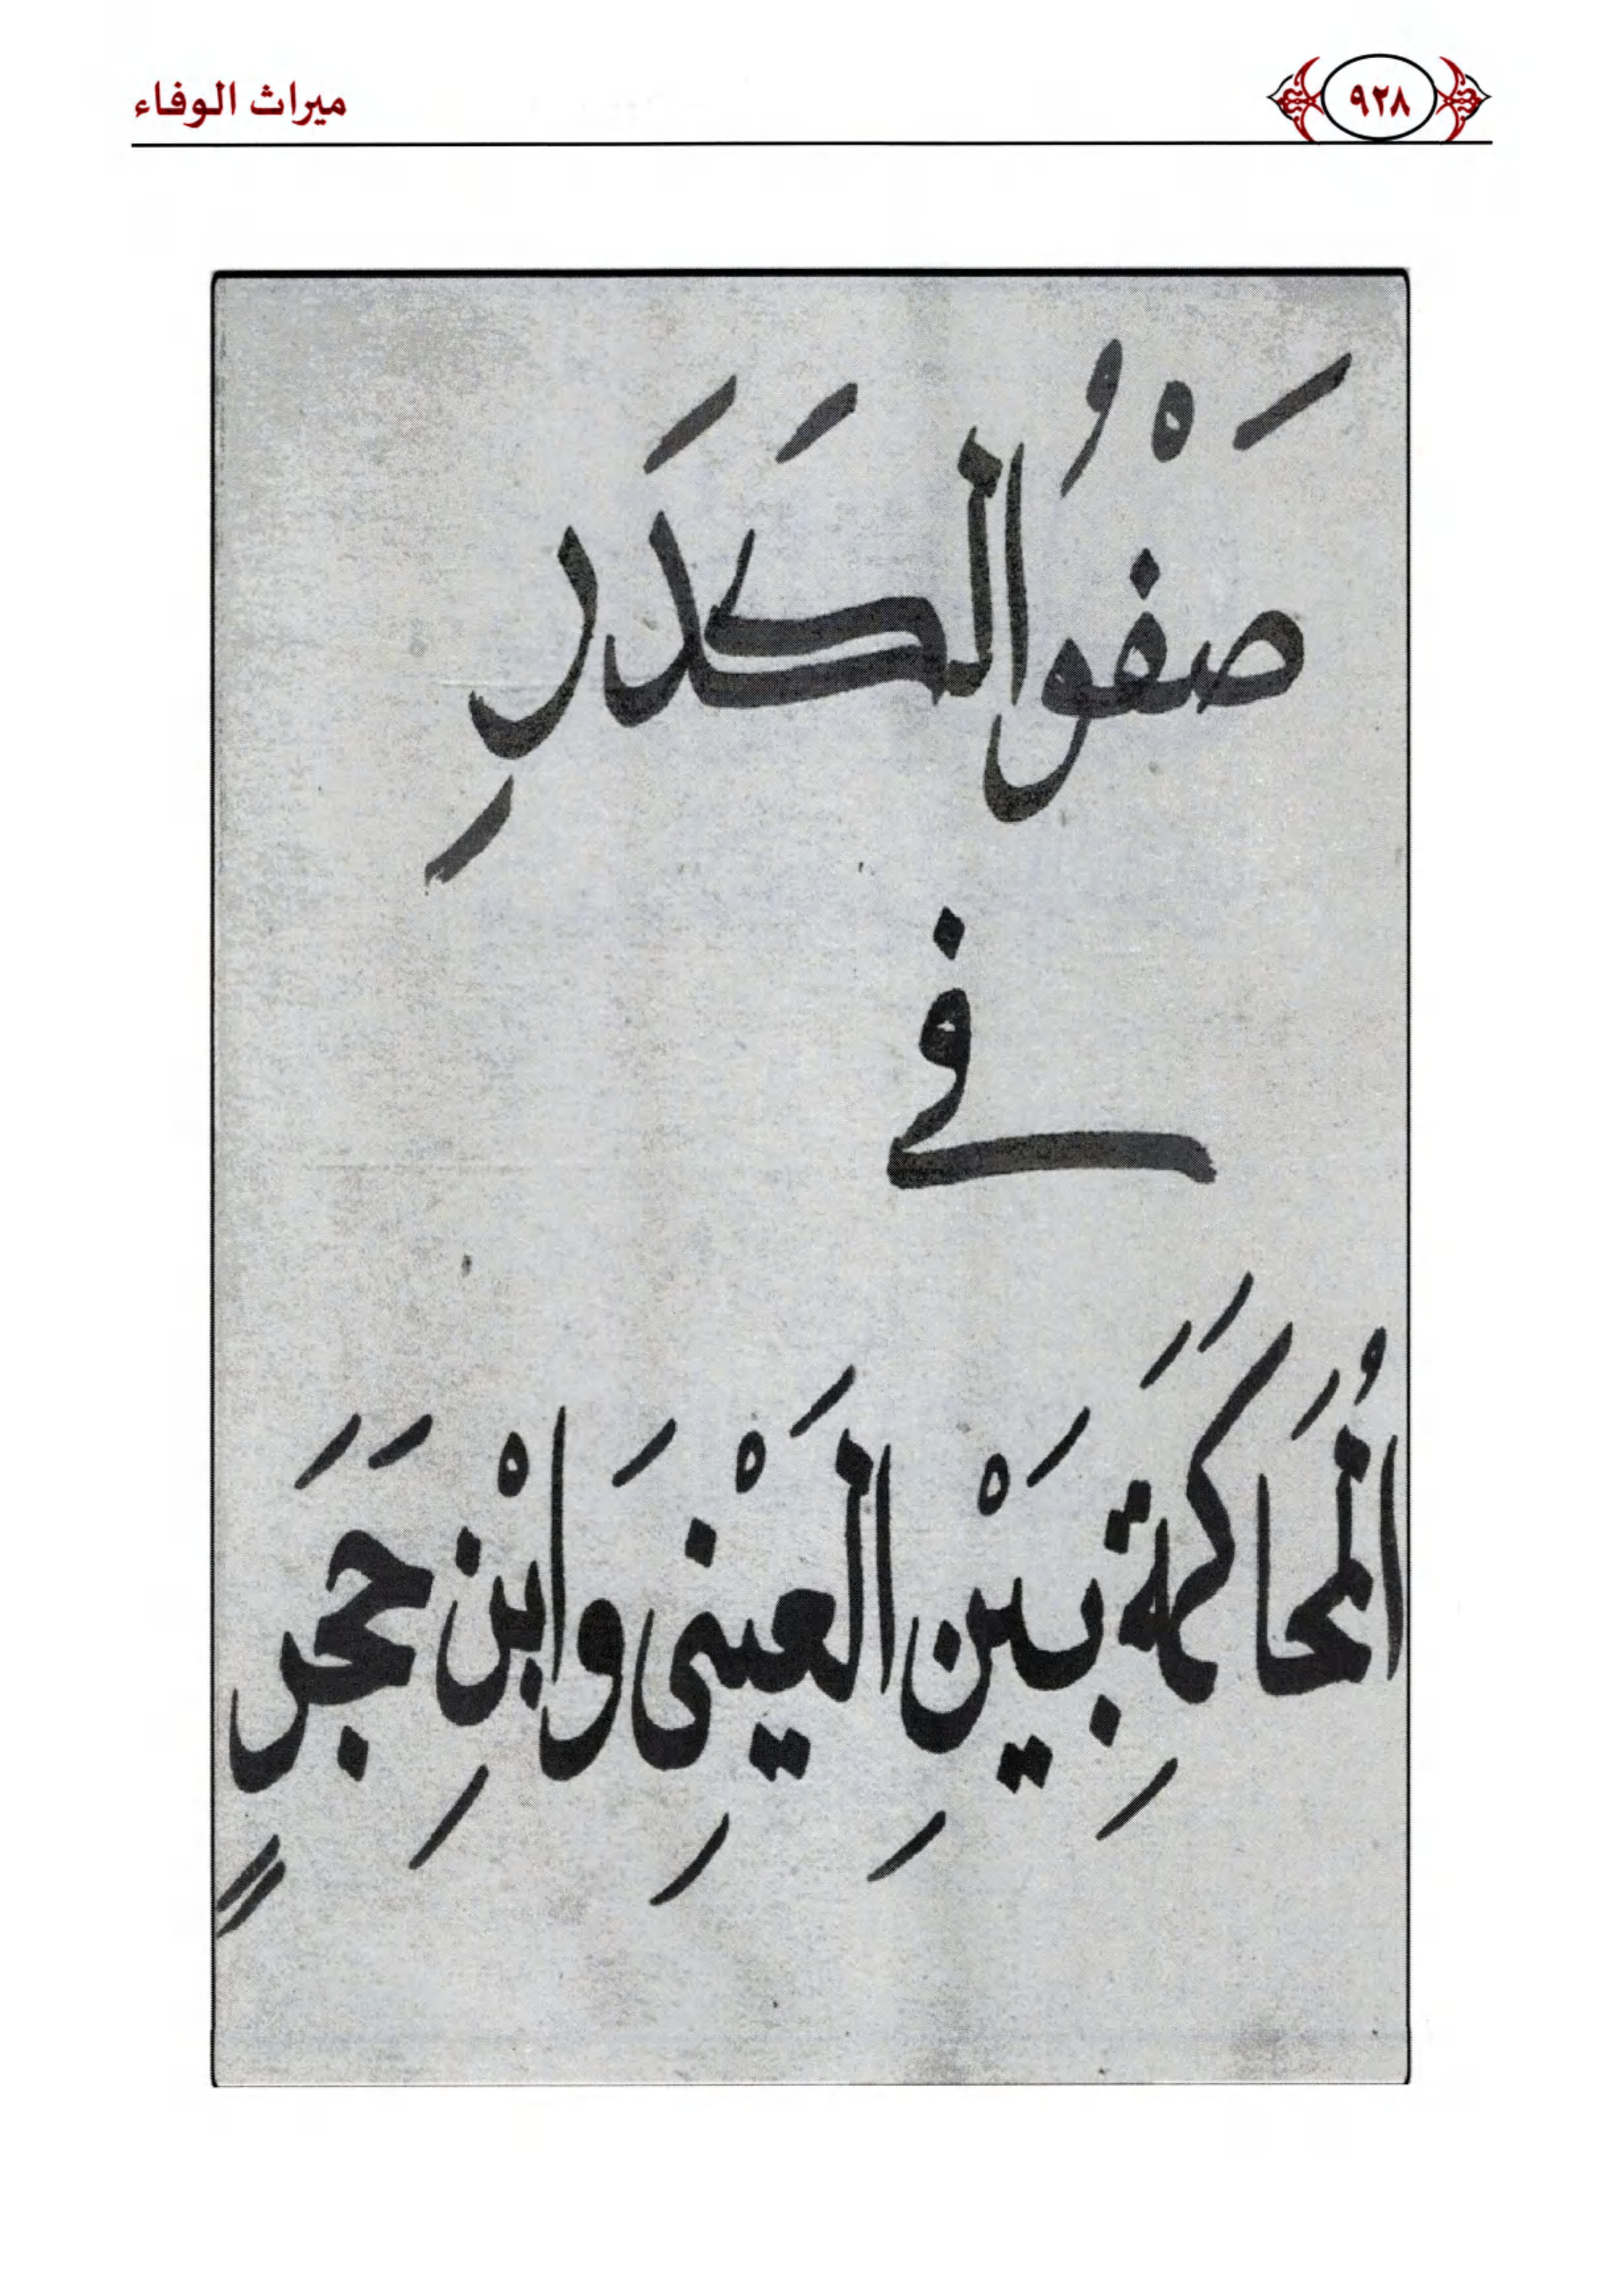 ٩٢٨
ميراث الوفاء
صَفْوُ الكَدَرِ
في
المُحَاكَمَةِ بَيْنِ العَيْنِى وَابْنِ حَجَرٍ